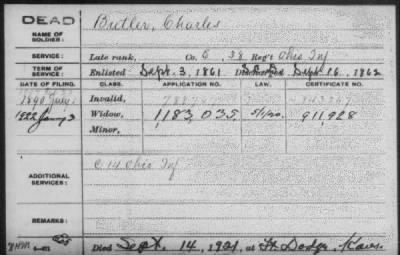 DEAD
NAME OF SOLDIER: Butler, Charles
SERVICE: Late rank, Co. G, 38 Reg't Ohio Inf
TERM OF SERVICE: Enlisted Sept. 3, 1861 Discharged Sept. 16, 1862
DATE OF FILING. CLASS. APPLICATION NO. LAW. CERTIFICATE NO.
1890 July Invalid,
1922 Jany 3 Widow, 1183,035 5/1/20. 911,928
Minor,
ADDITIONAL SERVICES: C. 14 Ohio Inf
REMARKS:
Died Sept. 14, 1921, at Ft. Dodge, Kans.